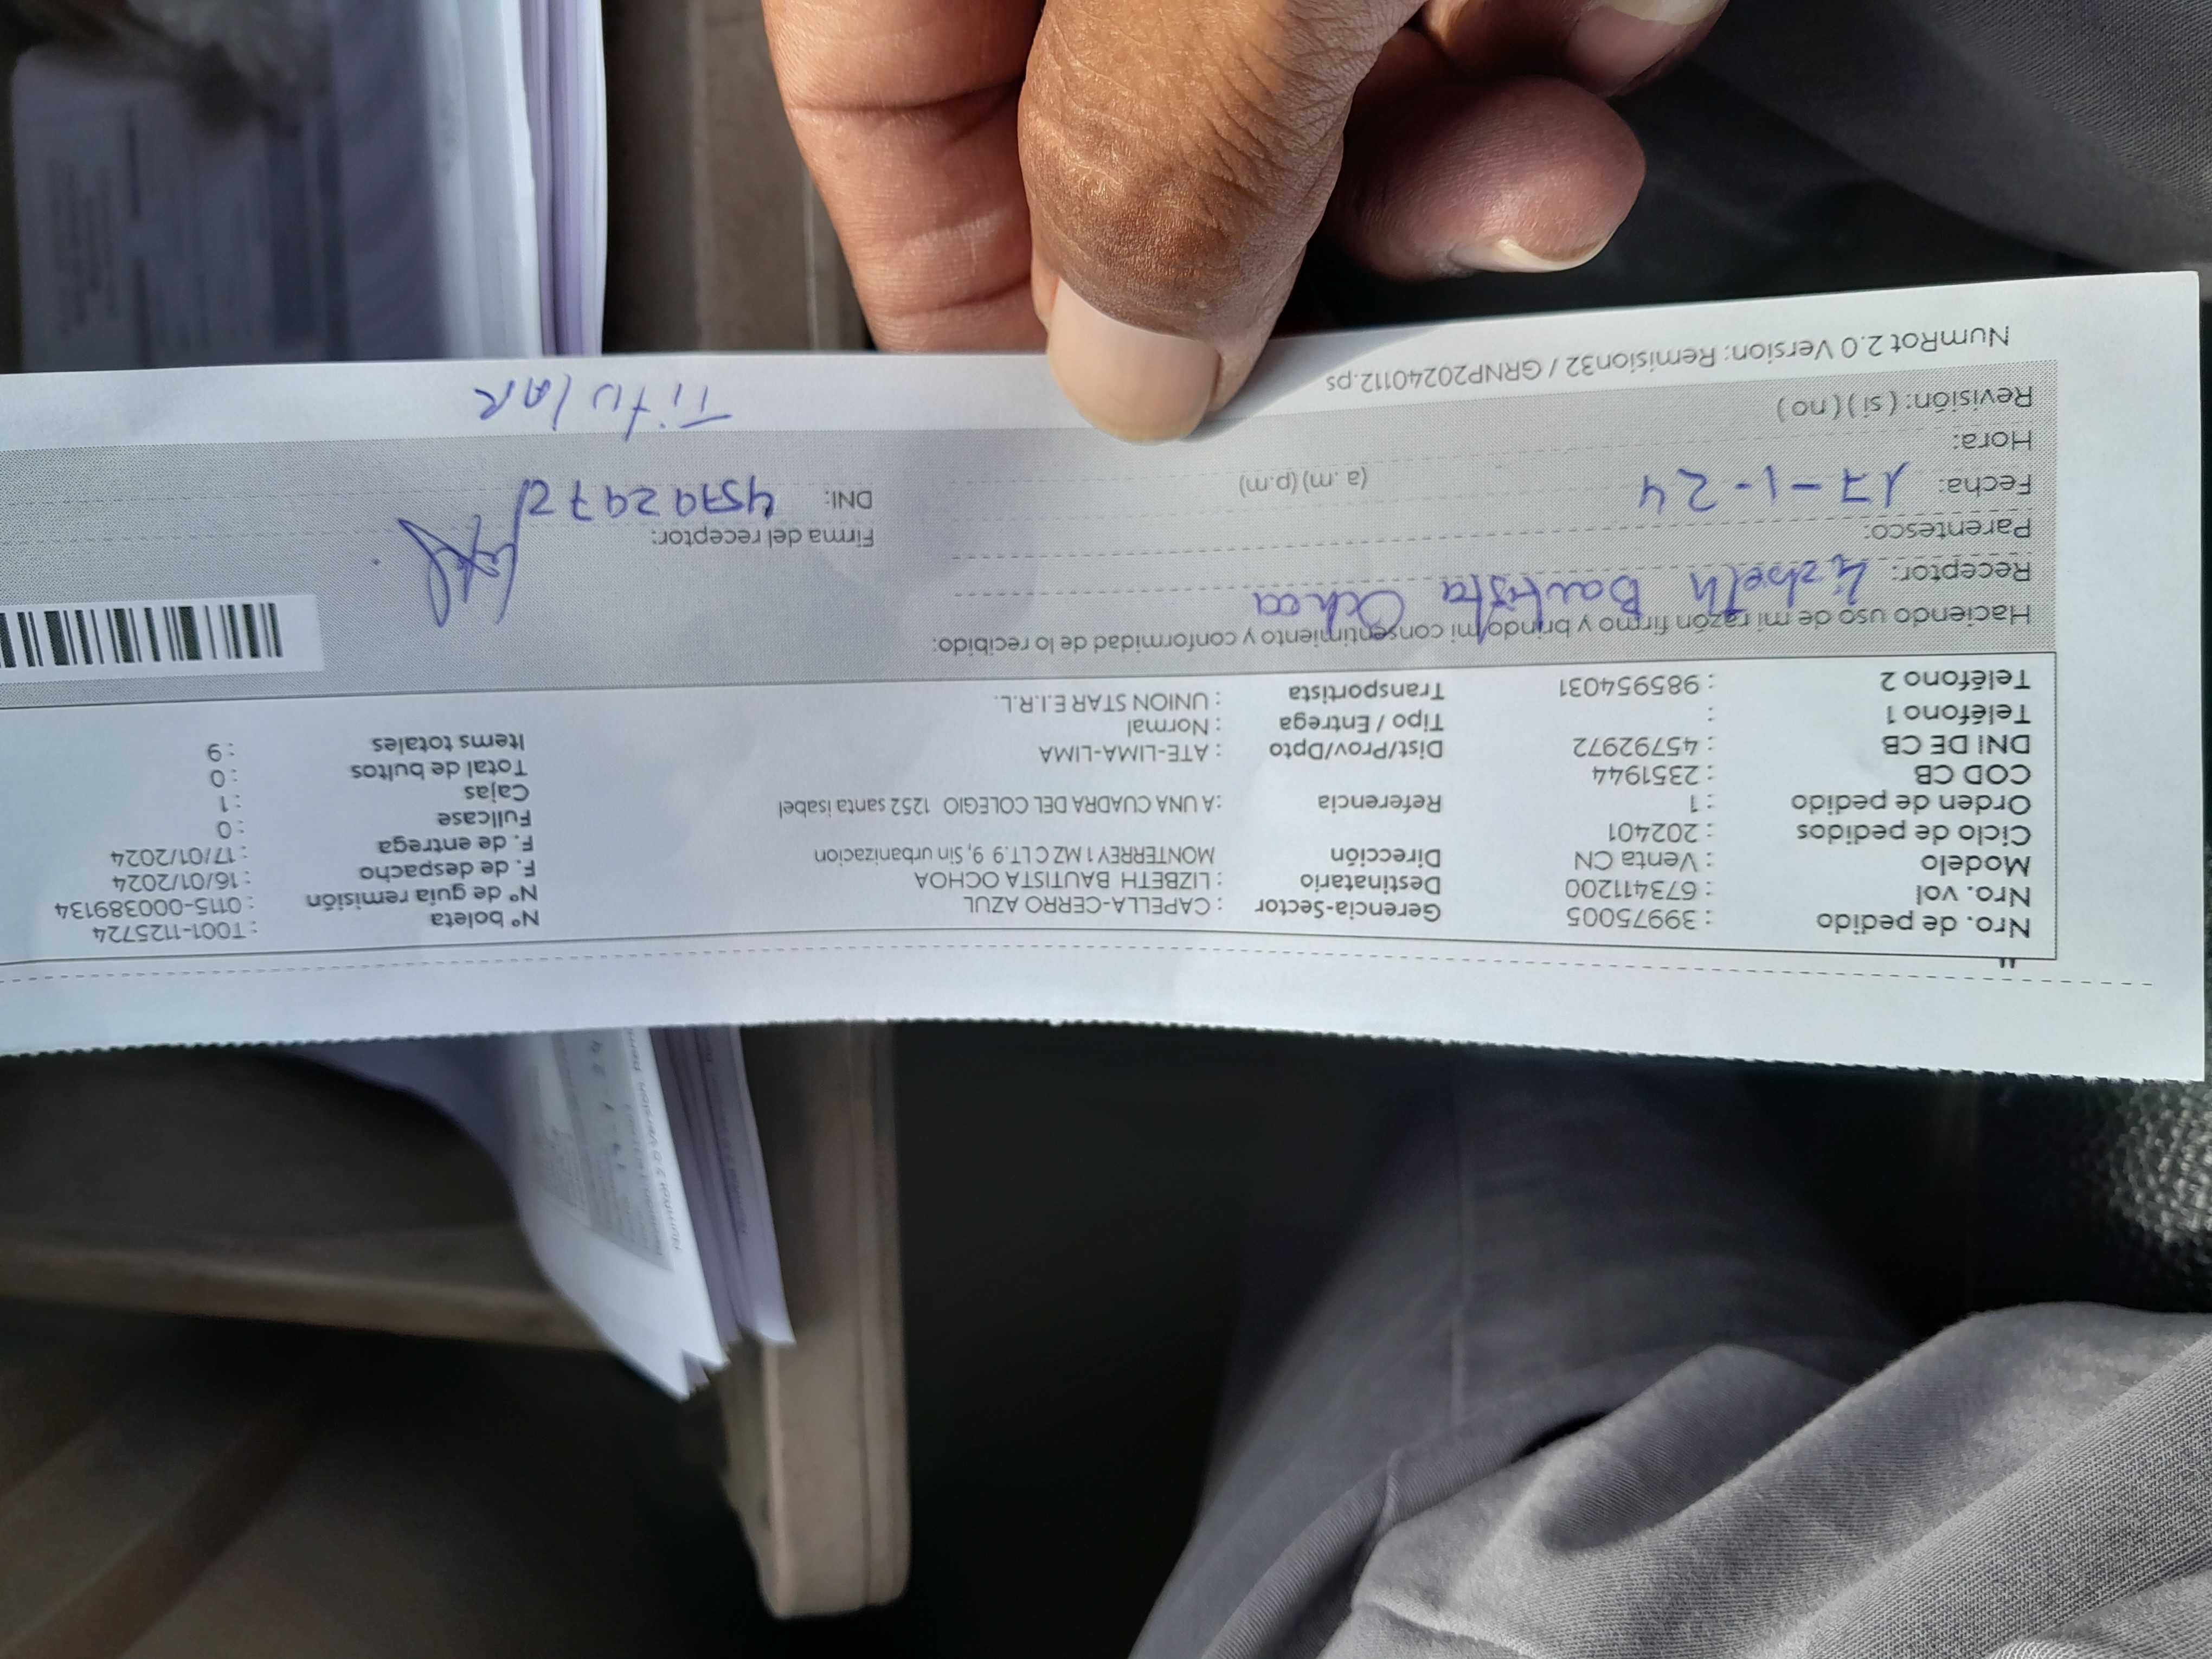 Nro. de pedido : 39975005 Gerencia-Sector : CAPELLA-CERRO AZUL Nº boleta : T001-1125724
Nro. vol : 673411200 Destinatario : LIZBETH BAUTISTA OCHOA Nº de guía remisión : 0115-000389134
Modelo : Venta CN Dirección MONTERREY 1 MZ C LT.9 9, Sin urbanizacion F. de despacho : 16/01/2024
Ciclo de pedidos : 202401 F. de entrega : 17/01/2024
Orden de pedido : 1 Referencia : A UNA CUADRA DEL COLEGIO 1252 santa isabel Fullcase : 0
COD CB : 2351944 Cajas : 1
DNI DE CB : 45792972 Dist/Prov/Dpto : ATE-LIMA-LIMA Total de bultos : 0
Teléfono 1 : Tipo / Entrega : Normal Items totales : 9
Teléfono 2 : 985954031 Transportista : UNION STAR E.I.R.L.
Haciendo uso de mi razón firmo y brindo mi consentimiento y conformidad de lo recibido:
Receptor: Lizbeth Bautista Ochoa
Parentesco: Firma del receptor:
Fecha: 17-1-24 DNI: 45792972
Hora: (a .m) (p.m)
Revisión: ( sí ) ( no ) Titular
NumRot 2.0 Version: Remision32 / GRNP20240112.ps